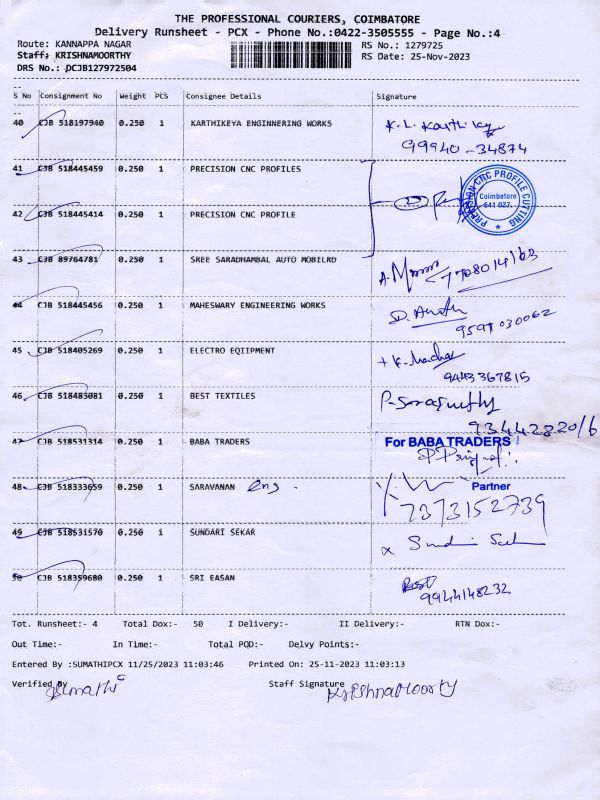 THE PROFESSIONAL COURIERS, COIMBATORE
Delivery Runsheet - PCX - Phone No.:0422-3505555 - Page No.:4
Route: KANNAPPA NAGAR RS No.: 1279725
Staff: KRISHNAMOORTHY RS Date: 25-Nov-2023
DRS No.: DCJB127972504
S No Consignment No Weight PCS Consignee Details Signature
40 CJB 518197940 0.250 1 KARTHIKEYA ENGINNERING WORKS K.L. Karthikey
99940-34874
41 CJB 518445459 0.250 1 PRECISION CNC PROFILES
PRECISION CNC PROFILE CUTTING
Coimbatore
641 027.
42 CJB 518445414 0.250 1 PRECISION CNC PROFILE
43 CJB 89764781 0.250 1 SREE SARADHAMBAL AUTO MOBILRD
44 CJB 518445456 0.250 1 MAHESWARY ENGINEERING WORKS
9591030062
45 CJB 518405269 0.250 1 ELECTRO EQTIPMENT
9443367815
46 CJB 518483081 0.250 1 BEST TEXTILES
9344282016
47 CJB 518531314 0.250 1 BABA TRADERS For BABA TRADERS
48 CJB 518333659 0.250 1 SARAVANAN Eng. Partner
7373152739
49 CJB 518531570 0.250 1 SUNDARI SEKAR
50 CJB 518359680 0.250 1 SRI EASAN
9944148232
Tot. Runsheet:- 4 Total Dox:- 50 I Delivery:- II Delivery:- RTN Dox:-
Out Time:- In Time:- Total POD:- Delvy Points:-
Entered By :SUMATHIPCX 11/25/2023 11:03:46 Printed On: 25-11-2023 11:03:13
Verified By Sumathi Staff Signature KrishnaMoorty